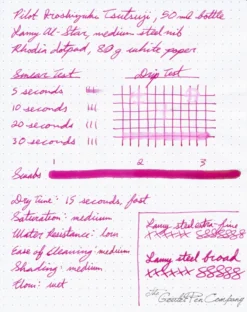 Pilot Iroshizuku Tsutsuji, 50 ml bottle
Lamy Al-Star, medium steel nib
Rhodia dotpad, 80g white paper
Smear Test
Drip Test
5 seconds
10 seconds
20 seconds
30 seconds
1 2 3
Swabs
Dry Time: 15 seconds, fast
Saturation: medium
Water Resistance: low
Ease of Cleaning: medium
Shading: medium
Flow: wet
Lamy steel extra-fine
xxxxxx 8888888
Lamy steel broad
xxxxxx 888888
The Goulet Pen Company